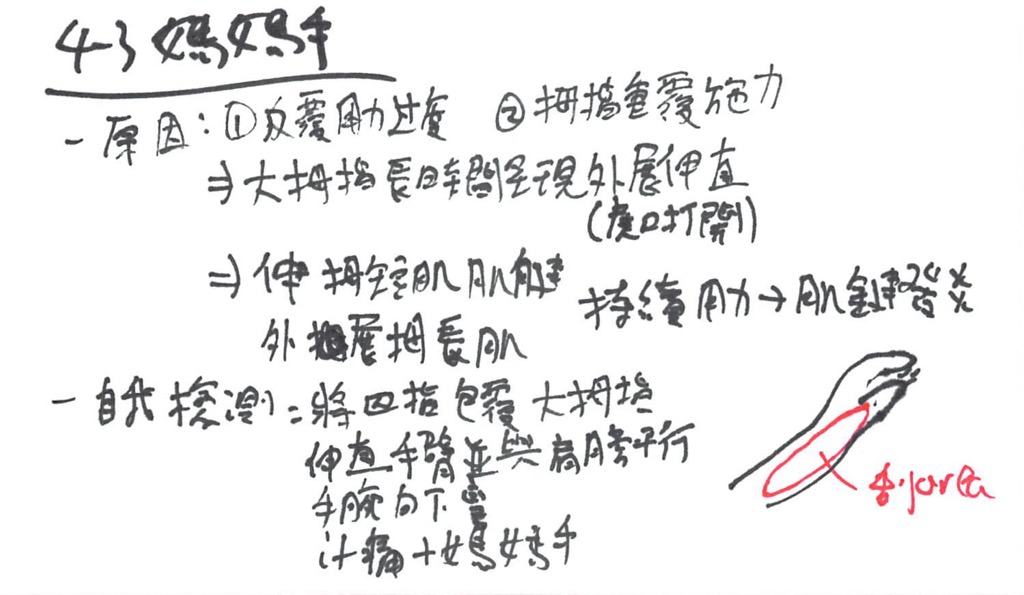 4-3 媽媽手
- 原因：①反覆用力过度 ②拇指重覆施力
⇒ 大拇指長時間呈現外展伸直
(虎口打開)
⇒ 伸拇短肌肌腱
外展拇長肌
持續用力→肌腱發炎
- 自我檢測：將四指包覆大拇指
伸直手臂並與肩膀平行
手腕向下彎
if 痛→媽媽手